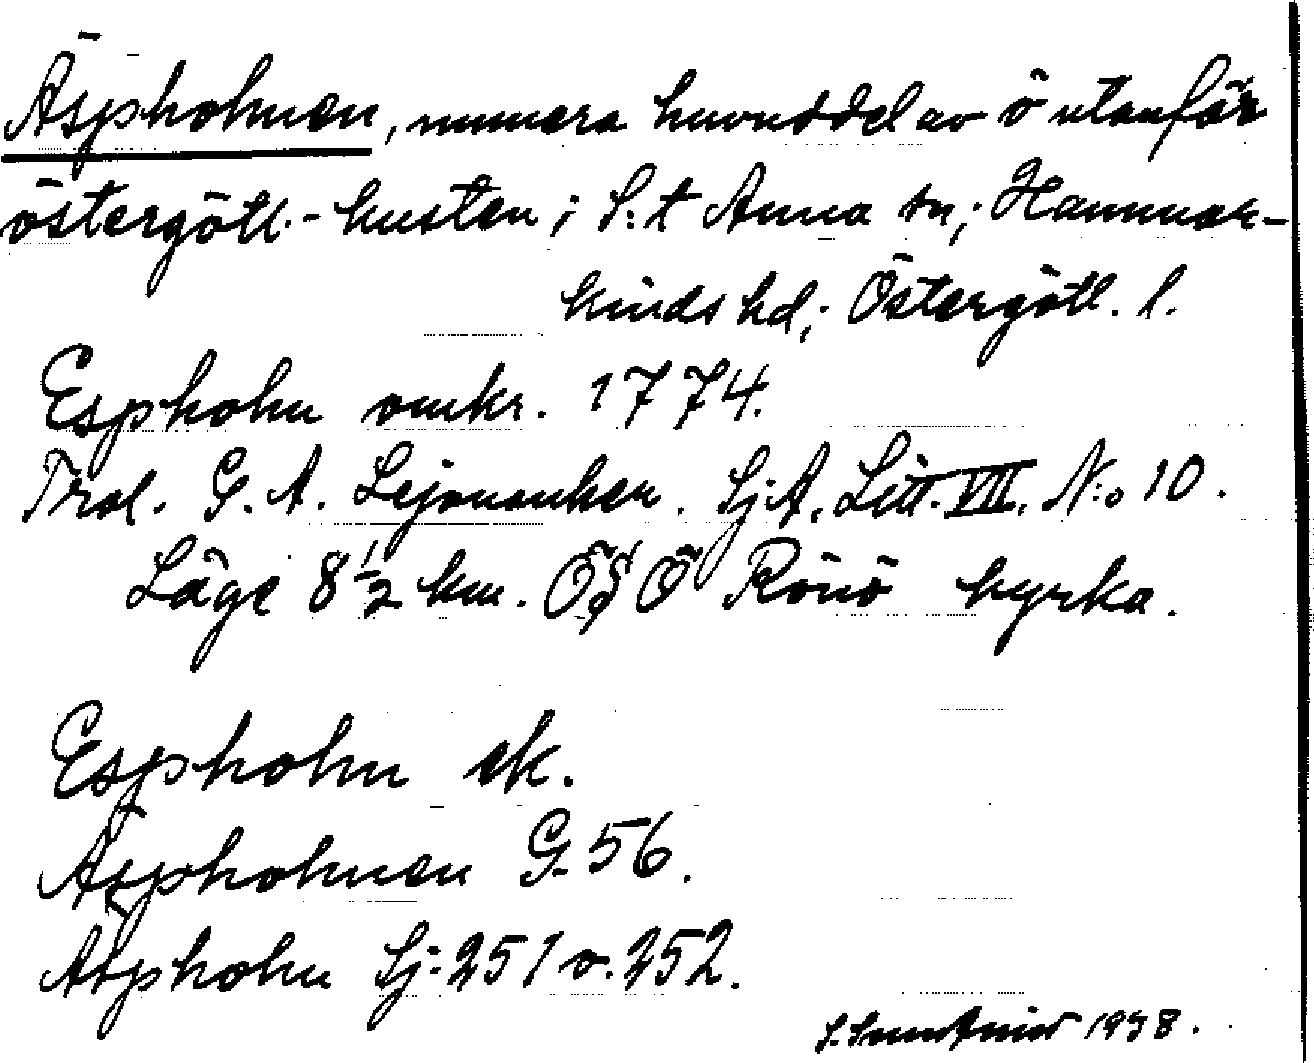 Äspholmen, numera huvuddel av ö utanför
östergötl.-kusten i S:t Anna sn; Hammar-
kinds hd; Östergötl. l.
Espholm omkr. 1774.
Trol. G. A. Lejonanker. Sj.A. Litt. VII. N:o 10.
Läge 8 1/2 km. ÖSÖ Rönö kyrka.
Espholm ek.
Äspholmen G. 56.
Äspholm Sj: 251 o. 252.
1938.